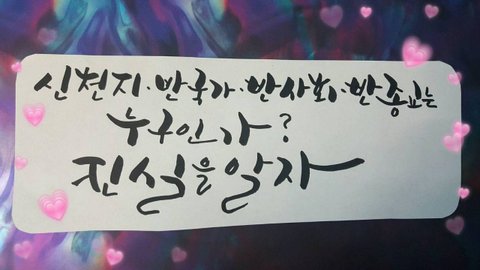 신천지·반국가·반사회·반종교는
누구인가?
진실을알자